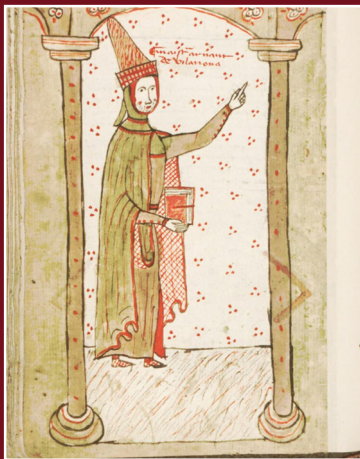 Emaist͛ arnaut
de Vilanova